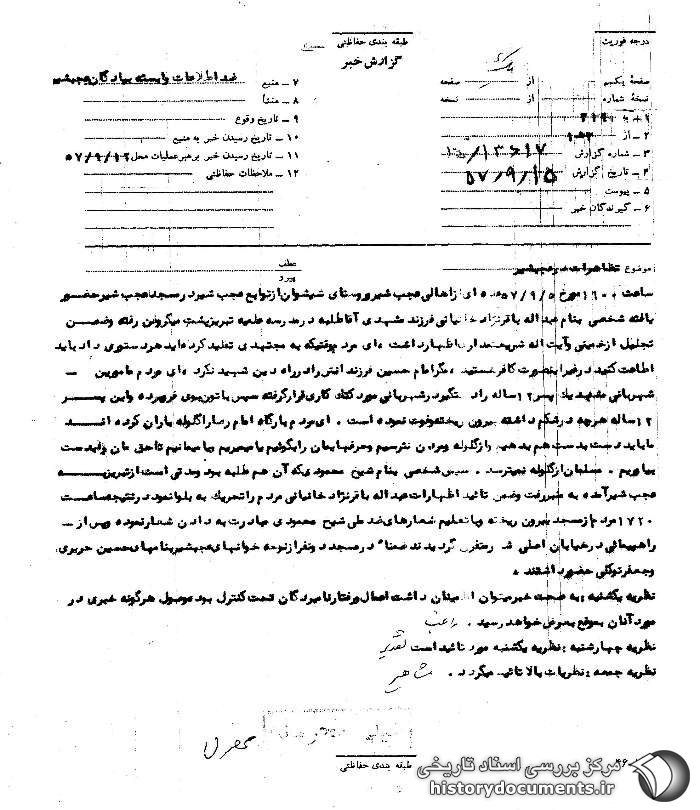 درجه فوریت
طبقه بندی حفاظتی
گزارش خبر
صفحه یکم از صفحه
نسخه شماره از نسخه
۱ - به ۳۱۲
۲ - از
۳ - شماره گزارش
۴ - تاریخ گزارش ۵۷/۹/۱۵
۵ - پیوست
۶ - گیرندگان خبر
۷ - منبع ضد اطلاعات وابسته بپادگان عجبشیر
۸ - منشأ
۹ - تاریخ وقوع
۱۰ - تاریخ رسیدن خبر به منبع
۱۱ - تاریخ رسیدن خبر برهبر عملیات محل ۵۷/۹/۱۲
۱۲ - ملاحظات حفاظتی
موضوع تظاهرات در عجبشیر
عطف
پیرو
ساعت ۱۶۰۰ مورخ ۵۷/۹/۵ عده ای از اهالی عجب شیر و روستای شیشوان از توابع عجب شیر در مسجد عجب شیر حضور
یافته شخصی بنام عبد اله باقرنژاد خانیانی فرزند مشهدی آقا طلبه در مدرسه علمیه تبریز پشت میکروفن رفته و ضمن
تجلیل از خمینی و آیت اله شریعتمداری اظهار داشت ای مردم وقتیکه به مجتهدی تقلید کرده اید هر دستوری داد باید
اطاعت کنید در غیر اینصورت کافر هستید مگر امام حسین فرزند انش را در راه دین شهید نکرد ای مردم مامورین -
شهربانی مشهد یك پسر ۱۲ ساله را دستگیر در شهربانی مورد کتك کاری قرار گرفته سپس با توپ بوی فرو برده و این پسر
۱۲ ساله هرچه در شکم داشته بیرون ریخته و فوت نموده است . ای مردم بارگاه امام رضا را گلوله باران کرده اند
ما باید دست بدست هم بدهیم و از گلوله و مردن نترسیم و حرفهایمان را بگوئیم یا میمیریم یا میمانیم تا حق مان را بدست
بیاوریم . مسلمان از گلوله نمیترسد . سپس شخصی بنام شیخ محمودی که آن هم طلبه بود و مدتی است از تبریز به
عجب شیر آمده به منبر رفت و ضمن تائید اظهارات عبد اله باقرنژاد خانیانی مردم را تحریك به بلوا نمود در نتیجه ساعت
۱۷۲۰ مردم از مسجد بیرون ریخته و با تعلیم شعارهای ضد ملی شیخ محمودی مبادرت به دادن شعار نموده و پس از -
راهپیمائی در خیابان اصلی شهر متفرق گردیدند ضمناً در مسجد دو نفر از نوحه خوانهای عجبشیر بنامهای حسین حریری
و جعفر توکلی حضور داشتند .
نظریه یکشنبه : به صحت خبر میتوان اطمینان داشت اعمال و رفتار نامبردگان تحت کنترل بود و حصول هرگونه خبری در
مورد آنان بموقع بعرض خواهد رسید .
نظریه چهارشنبه : نظریه یکشنبه مورد تائید است
نظریه جمعه : نظریات بالا تائید میگردد .
طبقه بندی حفاظتی
مرکز بررسی اسناد تاریخی
historydocuments.ir